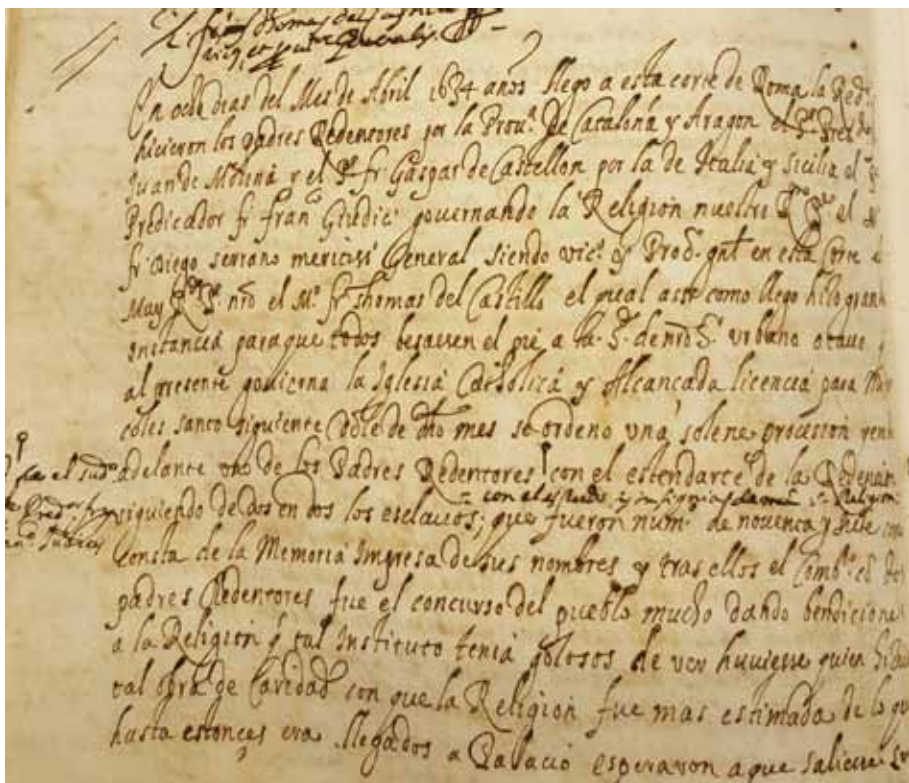 fr. Thomas del Castillo
Vicq. et Generalis.
En ocho dias del Mes de Abril 1634 años llego a esta corte de Roma la Red
hicieron los padres Redentores por la Prouª. De Cataloña y Aragon el Pe. Pres.do
Juan de Molina y el Pe. fr. Gaspar de Castellon por la de Italia y Sicilia el
Predicador fr. franco Giudici gouernando la Religion nuestro Rmo Pe. el
fr. Diego serrano meritiss. General siendo vicº. y Procr. gnl en esta Corte
Muy Rdo Pe. nro el Mº. fr. Thomas del Castillo el qual assi como llego hizo gran
instancia para que todos besassen el pie a la Sd. de nro Sr. vrbano otauo
al presente gouierna la Iglesia Catholica y Alcançada licencia para Mier
coles santo siguiente doce de dho mes se ordeno vna solene procession
adelante vno de los Padres Redentores con el estendarte de la Redencion
fue el sudº
con el escudo y insignias de nra Religion
siguiendo de dos en dos los esclauos; que fueron num. de nouenta y siete
consta de la Memoria Impresa de sus nombres y tras ellos el Combto. co
padres Redentores fue el concurso del pueblo mucho dando bendiciones
a la Religion q tal Instituto tenia golosos de ver huuiesse quien
tal obra de Caridad con que la Religion fue mas estimada de lo q
hasta estonçes era. llegados a Palacio esperaron a que saliesse